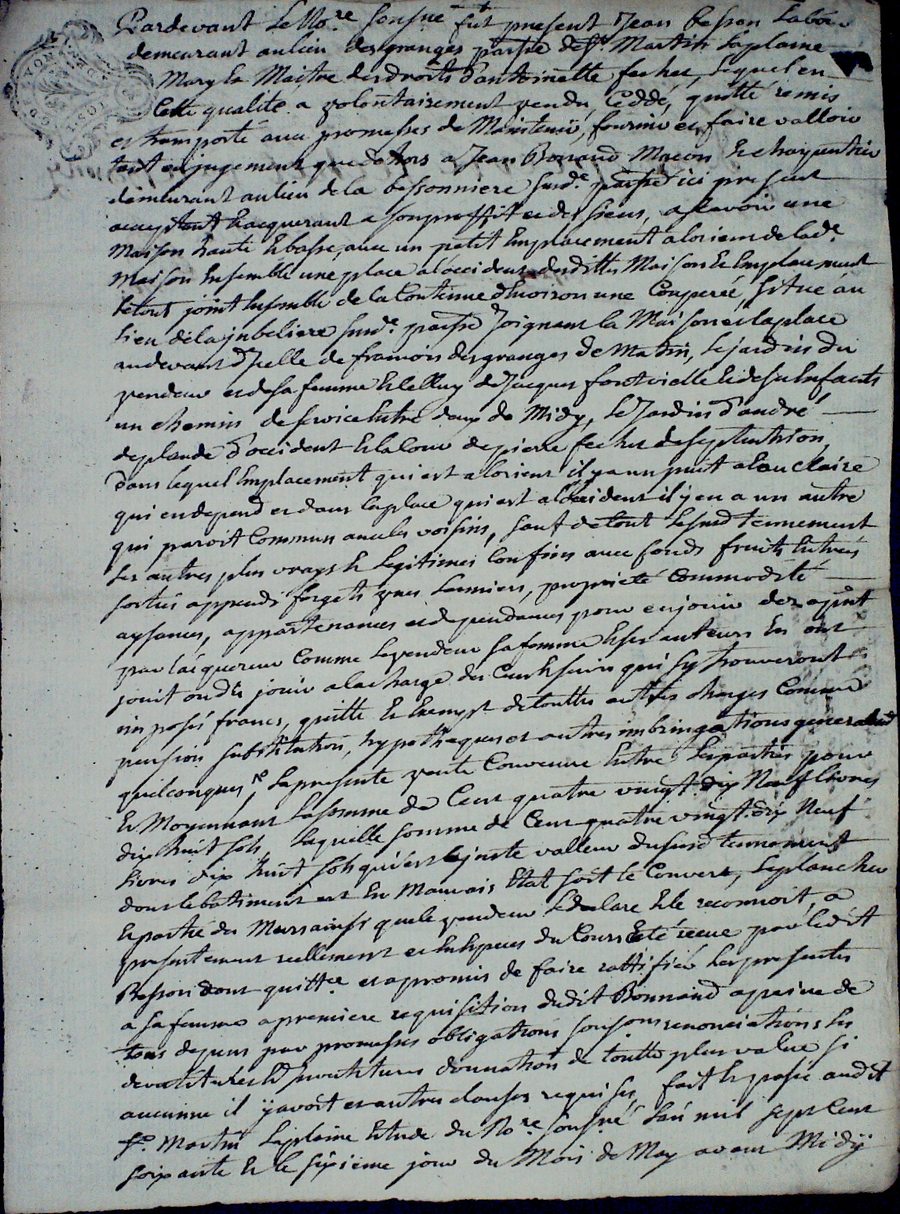 Pardevant Le No.re sousné fut present Jean Besson Labour
demeurant au lieu des granges parsse de St Martin Laplaine
Mary & Maitre des droits d'antoinette fecher, Lequel en
Cette qualité a volontairement vendu, Ceddé, quitté remis
et transporté avec promesses de Maintenir, fournir et faire valloir
tant en jugement que dehors a Jean Bonnand Macon & charpentier
demeurant au lieu de la bessonniere sus.de parsse ici present
acceptant & acquerant a son proffit et des siens, asçavoir une
Maison haute & basse, avec un petit Emplacement a lorient de lad.e
Maison Ensemble une place a loccident desdittes Maison & Emplacement
le tout joint Ensemble de la Contenue d'huoiron une Couperée, situé au
Lieu de la jubeliere sus.de parsse Joignant la Maison et la place
audevant d'Icelle de francois desgranges de Matin, Le jardin du
vendeur et de sa femme & le de Jacques fontvielle & de ses Enfants
un chemin de service Entre deux de Midy, Le Jardin d'andré
deplaude d'occident & la Cour de pierre fecher de septentrion,
Dans lequel Emplacement qui est a lorient il y a un puit a Eau Claire
qui en depend et dans la place qui est a loccident il y en a un autre
qui paroit Commun avec les voisins, sauf de tout Le susd tennement
ses autres plus vrays & Legitimes Confins avec fonds fruits Entrées
sorties appends forgets vues Larmiers, proprieté Commodité
aysances, appartenances et dependances pour en jouir dez apnt
par lacquereur Comme Le vendeur sa femme & ses auteurs En ont
jouit ou dû jouir a la charge des Cens & servis qui sy trouveront
imposés francs, quitte & Exempt de touttes autres charges Comme
pension substitution, hypotheques et autres imbringations generalmt
quelconques, La presente vente Convenue Entre Les parties pour
& Moyennant La somme de Cent quatre vingt dix Neuf Livres
dix huit sols, Laquelle somme de Cent quatre vingt dix Neuf
Livres dix huit sols qui est la juste valleur du susd tennement
dont le batiment est En Mauvais Etat soit le Couvert, Le plancher
& partie des Murs ainsi que le vendeur le declare & le reconnoit, a
presentement reellement et En Especes du Cours Eté receue par ledit
Besson dont quittce et a promis de faire rattifier Les presentes
a sa femme a premiere requisition dudit Bonnand a peine de
tous depens par promesses obligations soumissions renonciations &s
devestitures & Investitures donnation de toutte plus value si
aucunne il y avoit et autres clauses requises, fait & passé audit
St Martin Laplaine Etude du No.re sousné L'an mil sept Cent
soixante & le sixieme jour du Mois de May avant Midÿ